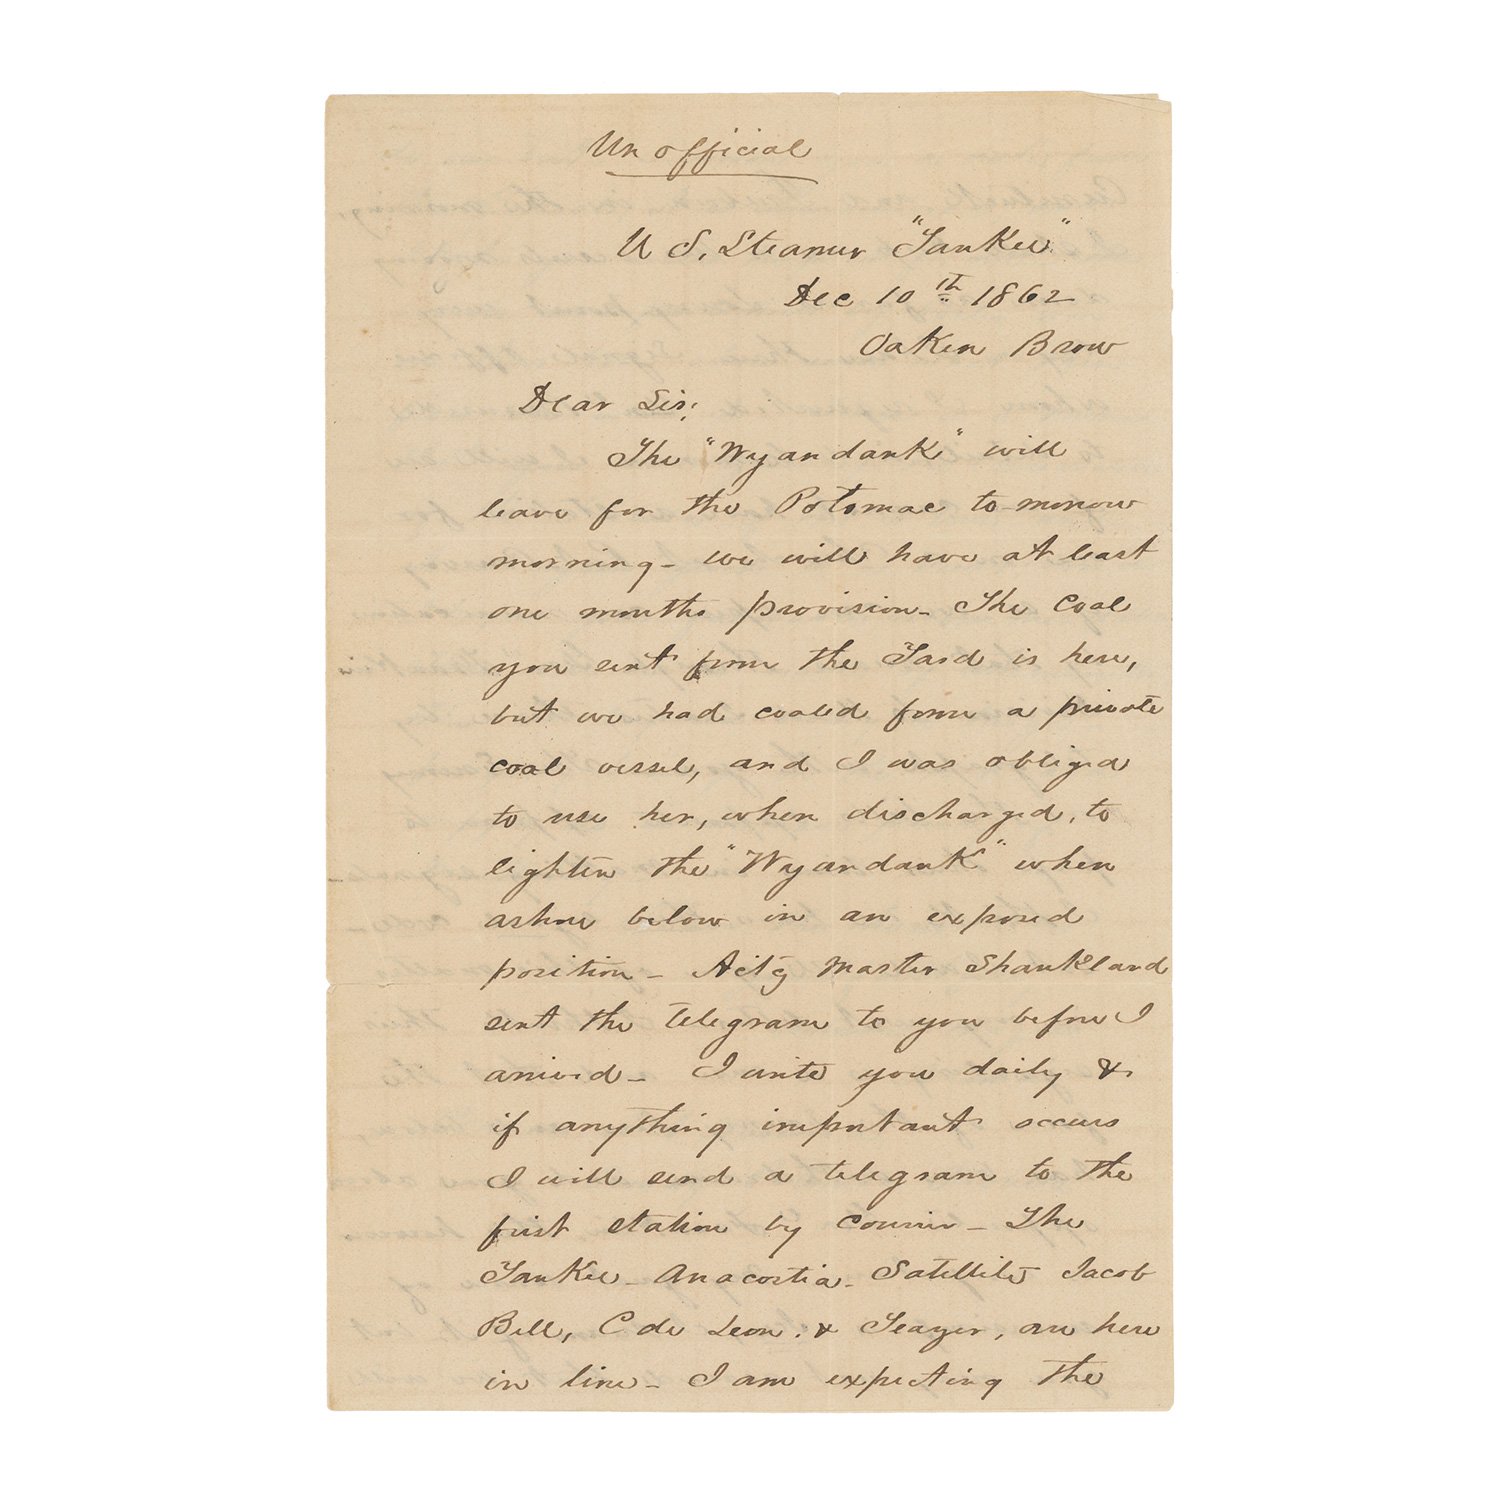 Un official
U S, Steamer "Yankee"
Dec 10th 1862
Oaken Brow
Dear Sir;
The "Wyandank" will
leave for the Potomac to-morrow
morning - we will have at least
one months provision - The Coal
you sent from the Yard is here,
but we had coaled from a private
coal vessel, and I was obliged
to use her, when discharged, to
lighten the "Wyandank" when
ashore below in an exposed
position - Act'g Master Shankland
sent the telegram to you before I
arrived - I write you daily &
if anything important occurs
I will send a telegram to the
first station by courier - The
Yankee - Anacostia - Satellite Jacob
Bell, C de Leon. & Teazer, are here
in line - I am expecting the